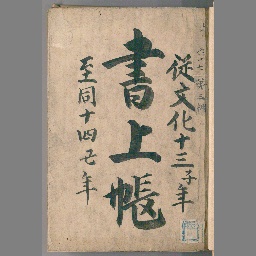 従文化十三子年
書上帳
至同十四丑年